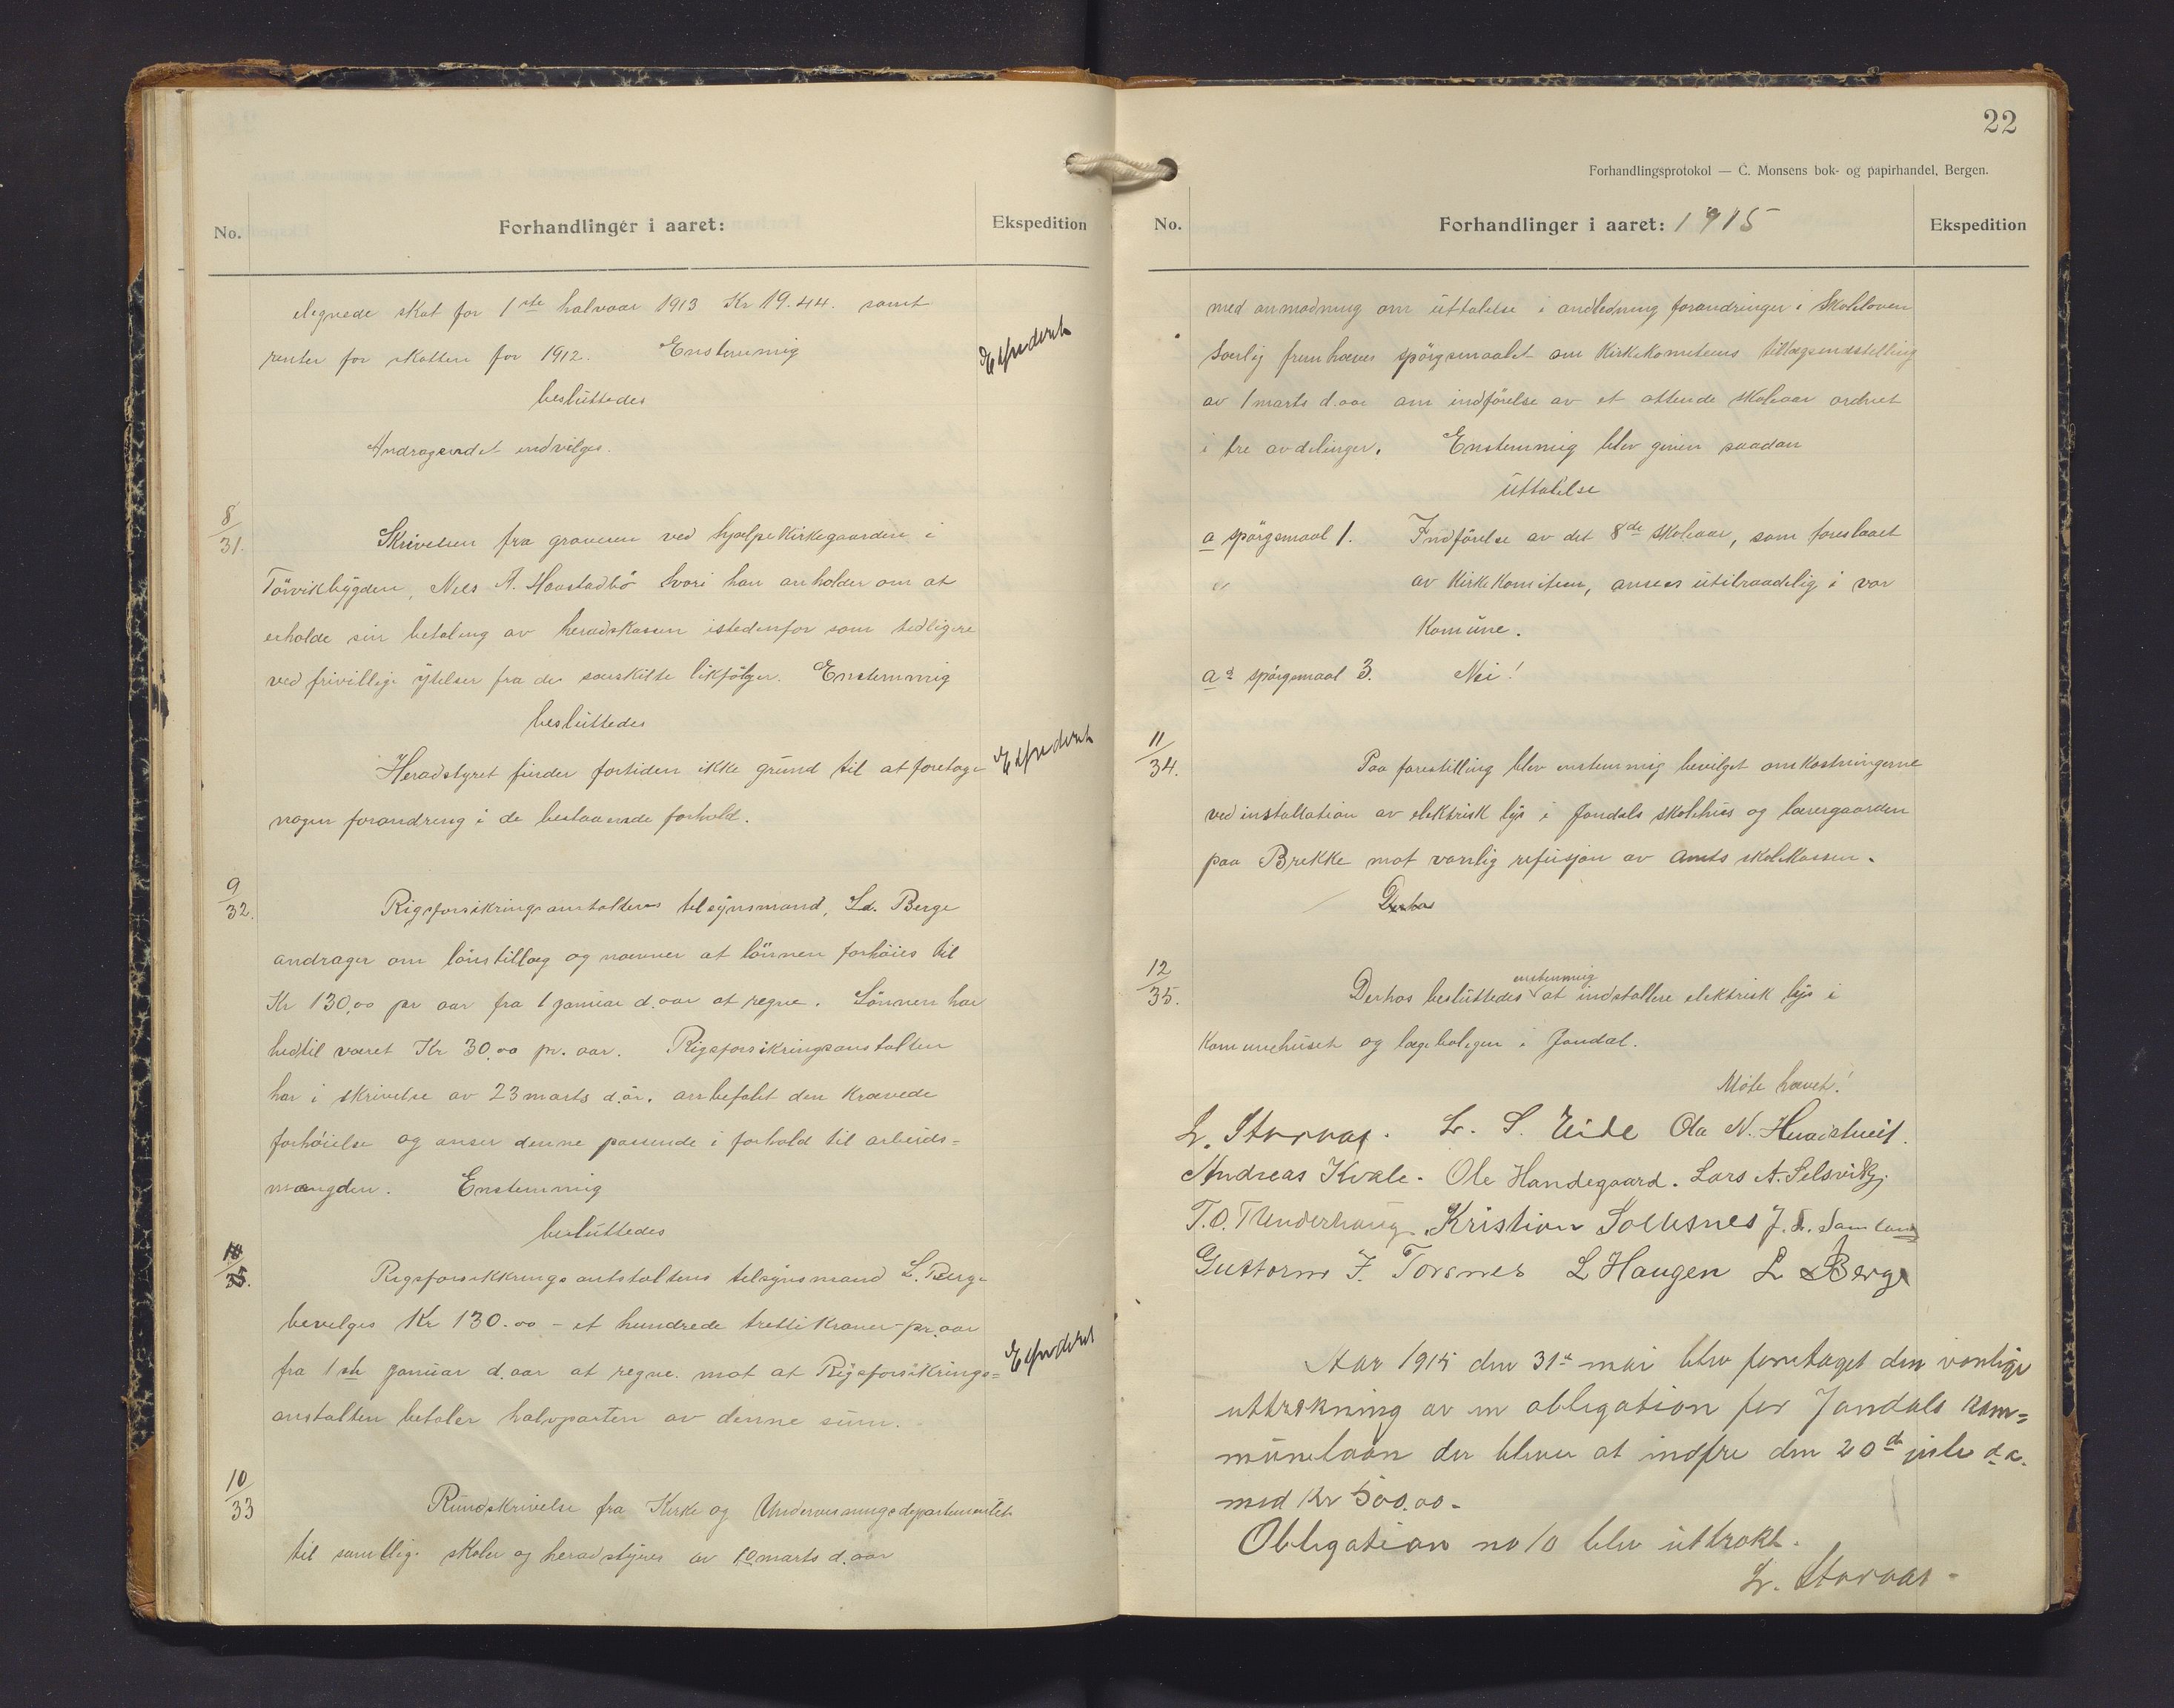 No.
Forhandlinger i aaret:
Ekspedition
elegnede skat for 1ste halvaar 1913 Kr 19.44. samt
renter for skatten for 1912. Enstemmig
Expederet
besluttedes
Andragendet indvilges.
8/31.
Skrivelsen fra graveren ved hjælpekirkegaarden i
Törvikbygden, Nils A. Haastadbö hvori han anholder om at
erholde sin betaling av heradskassen istedenfor som tidligere
ved frivillige ytelser fra de særskilte likfölger. Enstemmig
besluttedes
Heradstyret finder fortiden ikke grund til at foretage
Expederet
nogen forandring i de bestaaende forhold.
9/32.
Rigsforsikringsanstaltens tilsynsmand, Ld. Berge
andrager om lönstillæg og nævner at lönnen forhöies til
Kr 130,00 pr aar fra 1 januar d.aar at regne. Lönnen har
hedtil været Kr 30,00 pr. aar. Rigsforsikringsanstalten
har i skrivelse av 23 marts d.år. anbefalet den krævede
forhöielse og anser denne passende i forhold til arbeids=
mængden. Enstemmig
besluttedes
Rigsforsikkringsantstaltens tilsynsmand L. Berge
bevilges Kr 130.00 - et hundrede tretti kroner - pr.aar
fra 1ste januar d.aar at regne. mot at Rigsforsikrings=
Expederet
anstalten betaler halvparten av denne sum.
10/33
Rundskrivelse fra Kirke og Undervisningsdepartementet
til samtlige skoler og heradstyrer av 10 marts d.aar
22
Forhandlingsprotokol — C. Monsens bok- og papirhandel, Bergen.
No.
Forhandlinger i aaret: 1915
Ekspedition
med anmodning om uttalelse i andledning forandringer i Skoleloven
Særlig fremhæves spörgsmaalet om Kirkekomiteens tillægsindstilling
av 1 marts d.aar om indförelse av et attende skoleaar ordnet
i tre avdelinger. Enstemmig blev given saadan
uttalelse
a spörgsmaal 1. Indförelse av det 8de skoleaar, som foreslaaet
av Kirkekomiteen, ansees utilraadelig i vor
Komune.
ad spörgsmaal 3. Nei!
11/34.
Paa forestilling blev enstemmig bevilget omkostningerne
ved installation av elektrisk lys i Jondals skolehus og lærergaarden
paa Brekke mot vanlig refusjon av Amts skolekassen.
Derhos
12/35.
Derhos besluttedes enstemmig at indstallere elektrisk lys i
Kommunehuset og lægeboligen i Jondal.
Möte hævet!
L. Storaas. L. S. Eide Ola N. Huaistueit.
Andreas Kvale. Ole Handegaard. Lars A. Selsvik.
T.O. Underhaug. Kristian Solesnes J. S. Samland
Guttorm J. Torsnes L Haugen L Berge
Aar 1915 den 31te mai blev foretaget den vanlige
uttrækning av en obligation for Jondals kom=
munelaan der bliver at indfri den 20de juli d.a.
med Kr 500.00.
Obligation no 10 blev uttrokt.
L. Storaas.